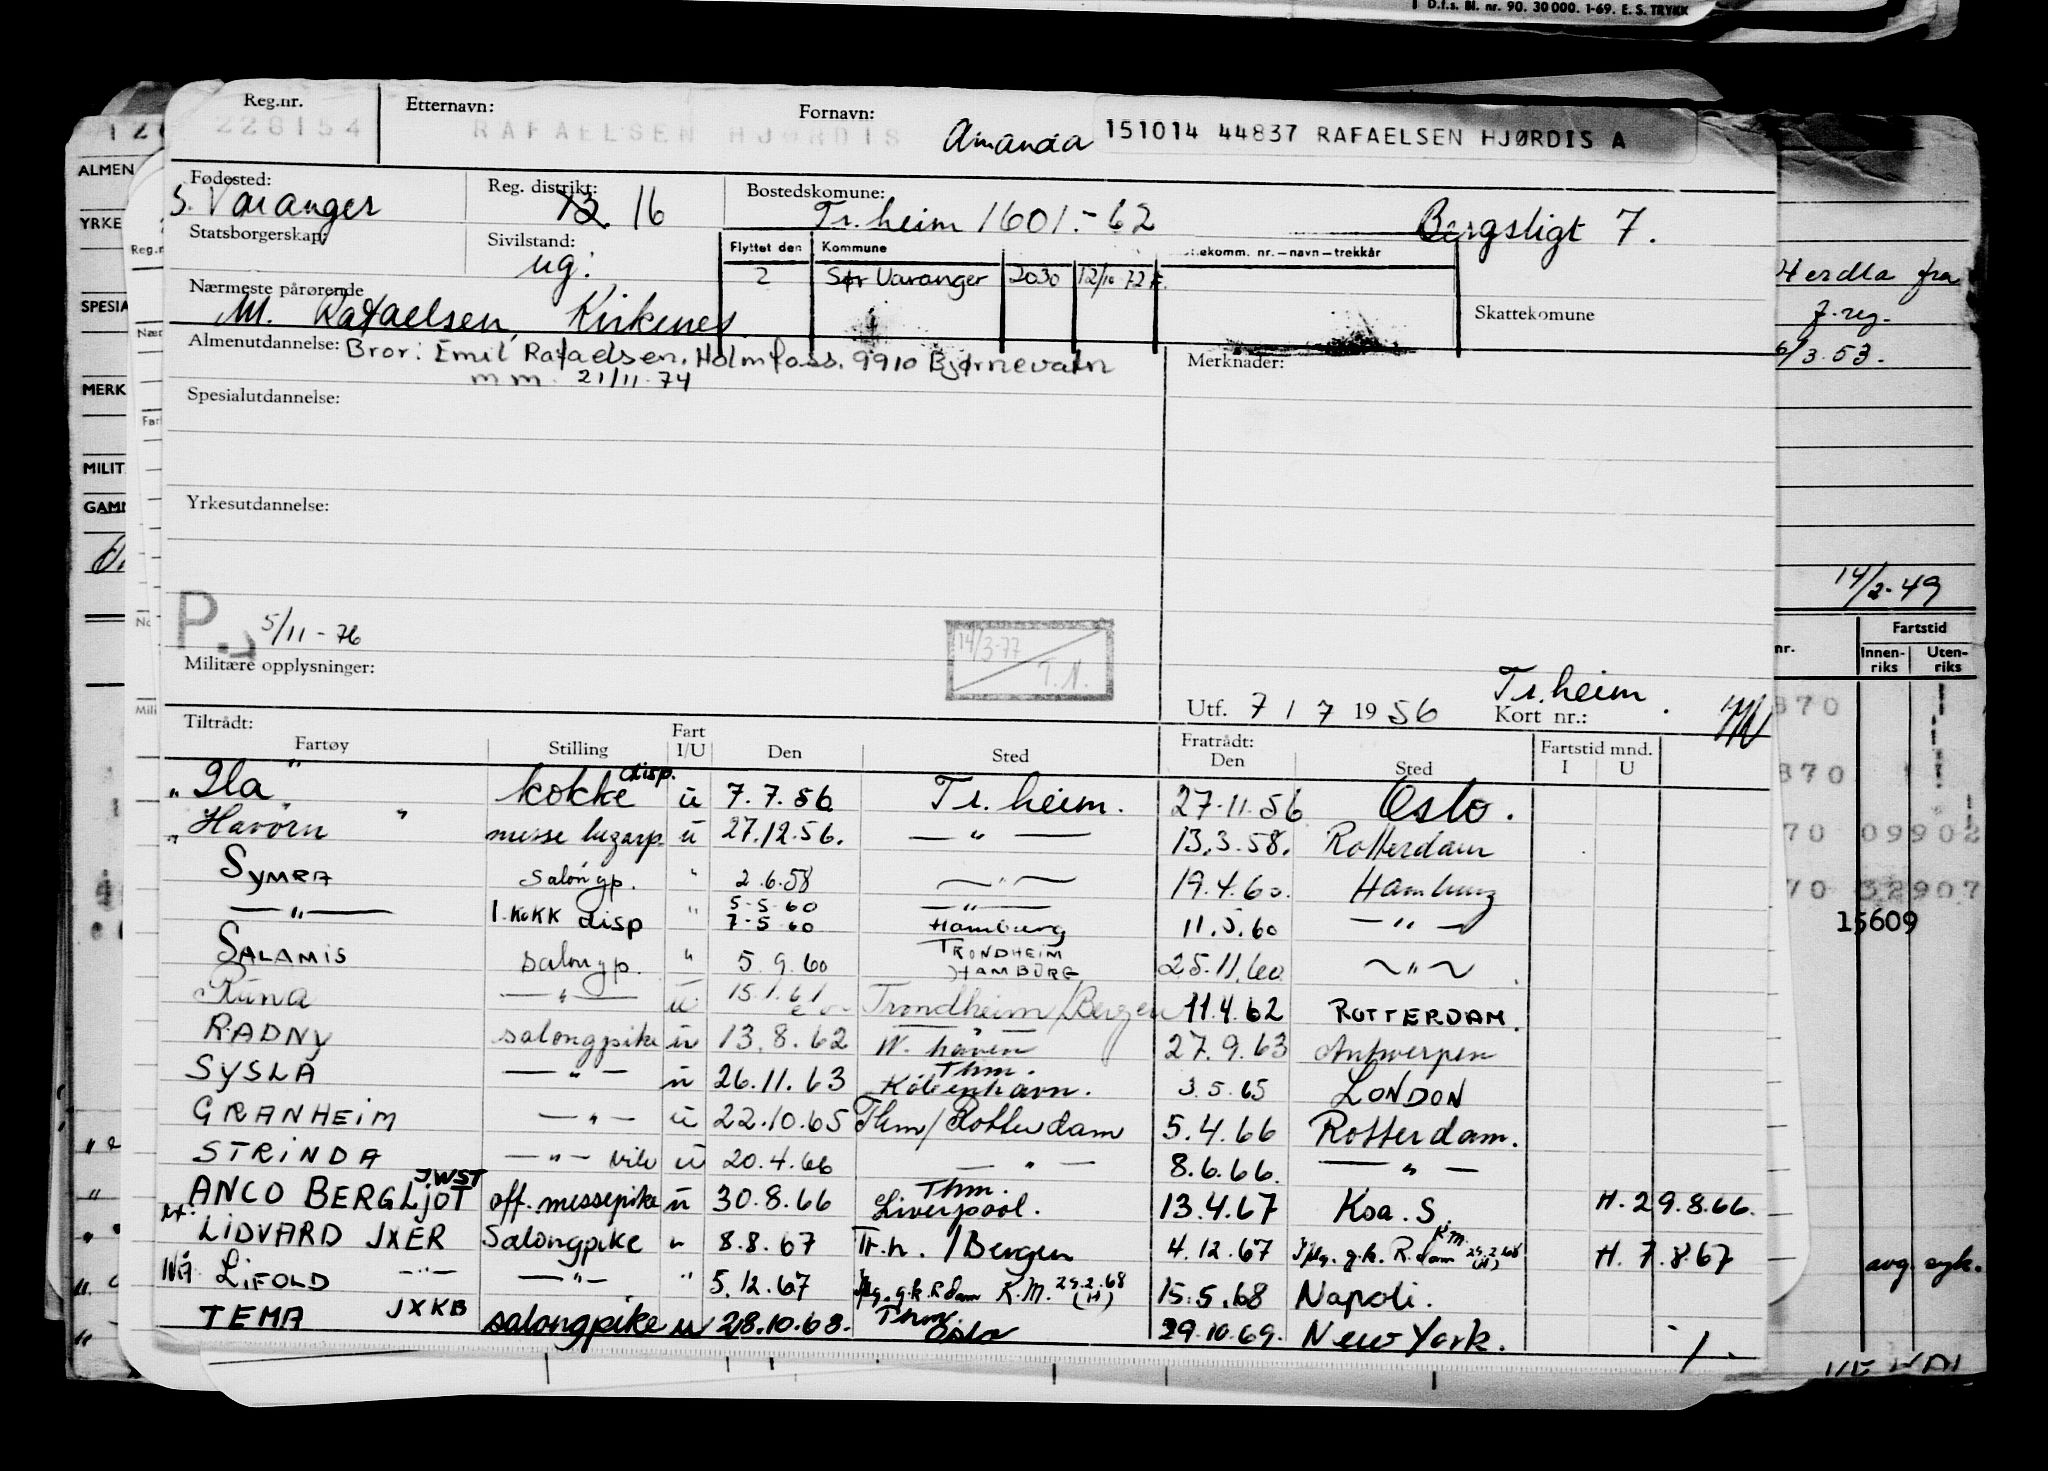 D.f.s. Bl. nr. 90. 30000. 1-69. E. S. TRYKK
Reg.nr. Etternavn: Fornavn:
228154 RAFAELSEN HJØRDIS Amanda 151014 44837 RAFAELSEN HJØRDIS A
Fødested: Reg. distrikt: Bostedskomune:
S. Varanger 13 16 Tr.heim 1601.-62 Bergsligt 7.
Statsborgerskap: Sivilstand: Flyttet den Kommune ekomm. nr.–navn–trekkår
ug. 2 Sør Varanger 2030 12/10 72 F.
Nærmeste pårørende Skattekomune
M. Rafaelsen, Kirkenes
Almenutdannelse: Bror: Emil Rafaelsen, Holmfoss. 9910 Bjørnevatn Merknader:
m m. 21/11-74
Spesialutdannelse:
Yrkesutdannelse:
P. 5/11-76
14/3-77
T.N.
Militære opplysninger:
Tr.heim.
Utf. 7 / 7 19 56 Kort nr.:
Tiltrådt: Fratrådt: Fartstid mnd.
Fartøy Stilling Fart I/U Den Sted Den Sted I U
"Ila" kokke disp. u 7.7.56 Tr.heim. 27.11.56 Oslo.
"Havørn" messe u 27.12.56. — " — 13.3.58. Rotterdam
SYMRA salongp. " 2.6.58 — " — 19.4.60. Hamburg
— " — 1. KOKK disp " 5-5-60 — " —
7-5-60 Hamburg 11.5.60 — " —
SALAMIS salongp. " 5.9.60 TRONDHEIM HAMBURG 25.11.60 ~ " ~
Runa — " — u 15.1.61 Trondheim/Bergen 11.4.62 ROTTERDAM.
RADNY salongpike u 13.8.62 W. haven 27.9.63 Antwerpen
SYSLA — " — u 26.11.63 Thm. København. 3.5.65 LONDON
GRANHEIM — " — u 22.10.65 Thm/Rotterdam 5.4.66 Rotterdam.
STRINDA — " — vik u 20.4.66 — " — 8.6.66. — " —
ANCO BERGLJOT JWST off. messepike u 30.8.66 Thm. Liverpool. 13.4.67 Koa. S. H. 29.8.66.
LIDVARD JXER Salongpike " 8.8.67 Tr.h. /Bergen 4.12.67 g.k. R.dam K.M. 29.2.68 (H) H. 7.8.67
Nå LIFOLD — " — — " — " 5.12.67 g.k. R.dam K.M. 29.2.68 (H) 15.5.68 Napoli.
TEMA JXKB salongpike u 28.10.68. Thm. Oslo 29.10.69. New York. 1.
ALMEN
YRKE
Reg.n
SPESIA
Nær
MERK
Fart
MILIT
GAMM
Mili
Herdla fra
6/3.53.
14/2-49
Fartstid
nr. Innen-riks Uten-riks
870
870
70 09902
70 32907
15609
avg. syk.